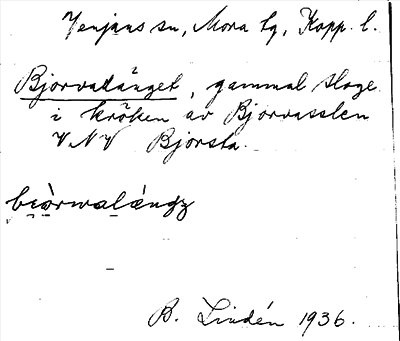 Venjans sn, Mora tg, Kopp. l.
Bjorvadänget, gammal sloge
i kröken av Bjorvasslen
VNV Bjorsta.
B. Lindén 1936.